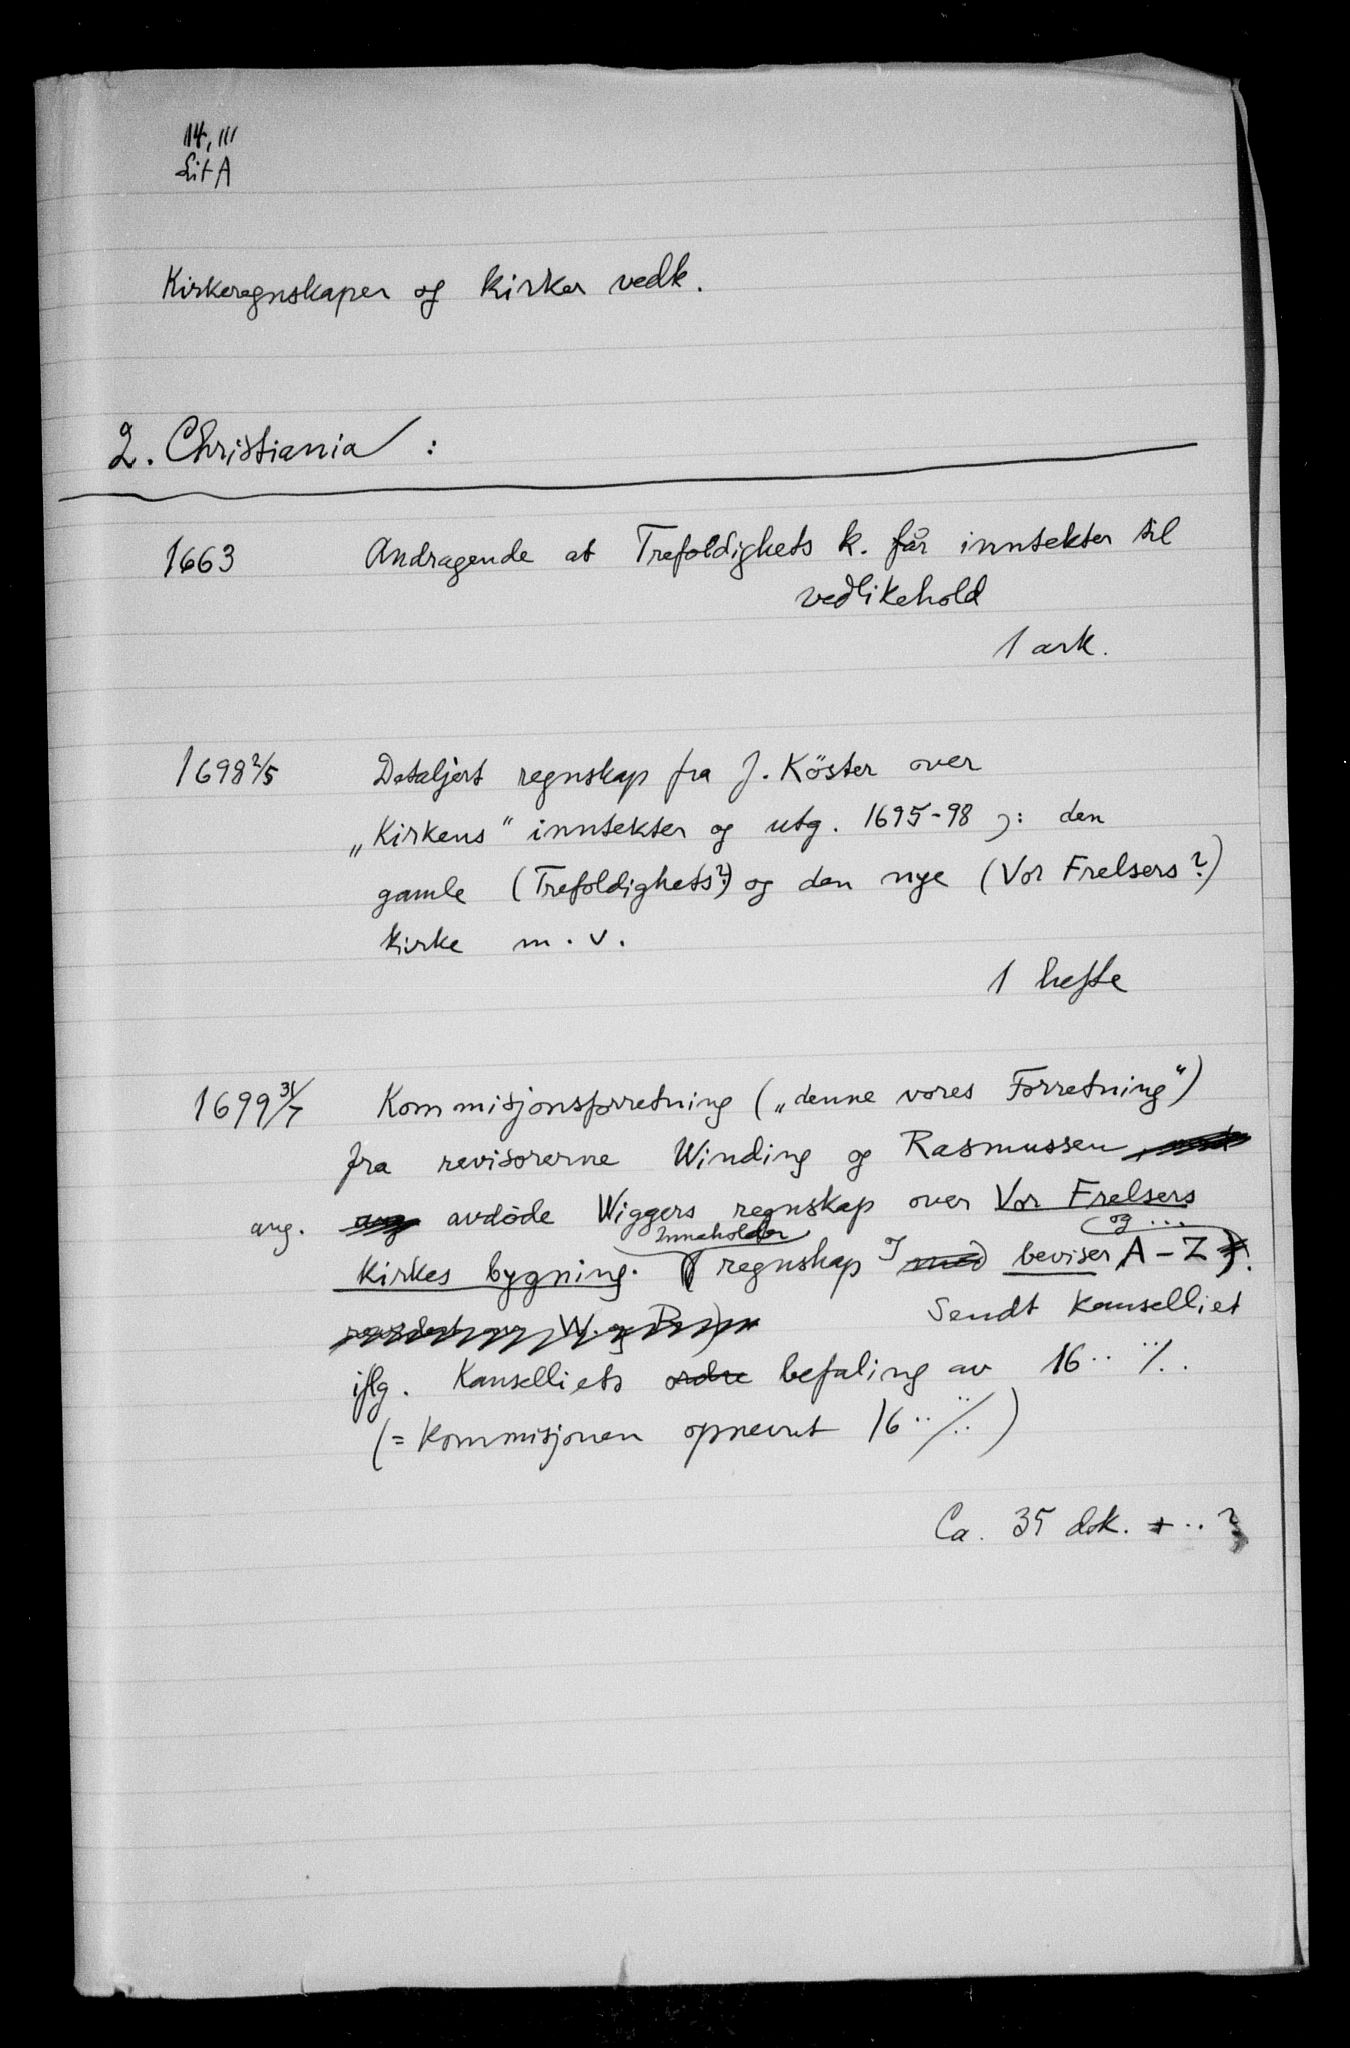 14, III
Lit A
Kirkeregnskaper og kirker vedk.
2. Christiania :
1663 Andragende at Trefoldighets k. får inntekter til
vedlikehold
1 ark.
1698 2/5 Detaljert regnskap fra J. Köster over
„Kirkens" inntekter og utg. 1695-98 ɔ: den
gamle (Trefoldighets?) og den nye (Vor Frelsers?)
kirke m.v.
1 hefte
1699 31/7 Kommisjonsforretning („denne vores Forretning")
fra revisorerne Winding og Rasmussen
ang. avdøde Wiggers regnskap over Vor Frelsers
Inneholder og ...
kirkes bygning. ( regnskap I med beviser A - Z ).
W. og R.
Sendt kanselliet
iflg. Kanselliets ordre befaling av 16.. ../..
(= kommisjonen opnevnt 16.. ../..)
Ca. 35 dok. + .. ?